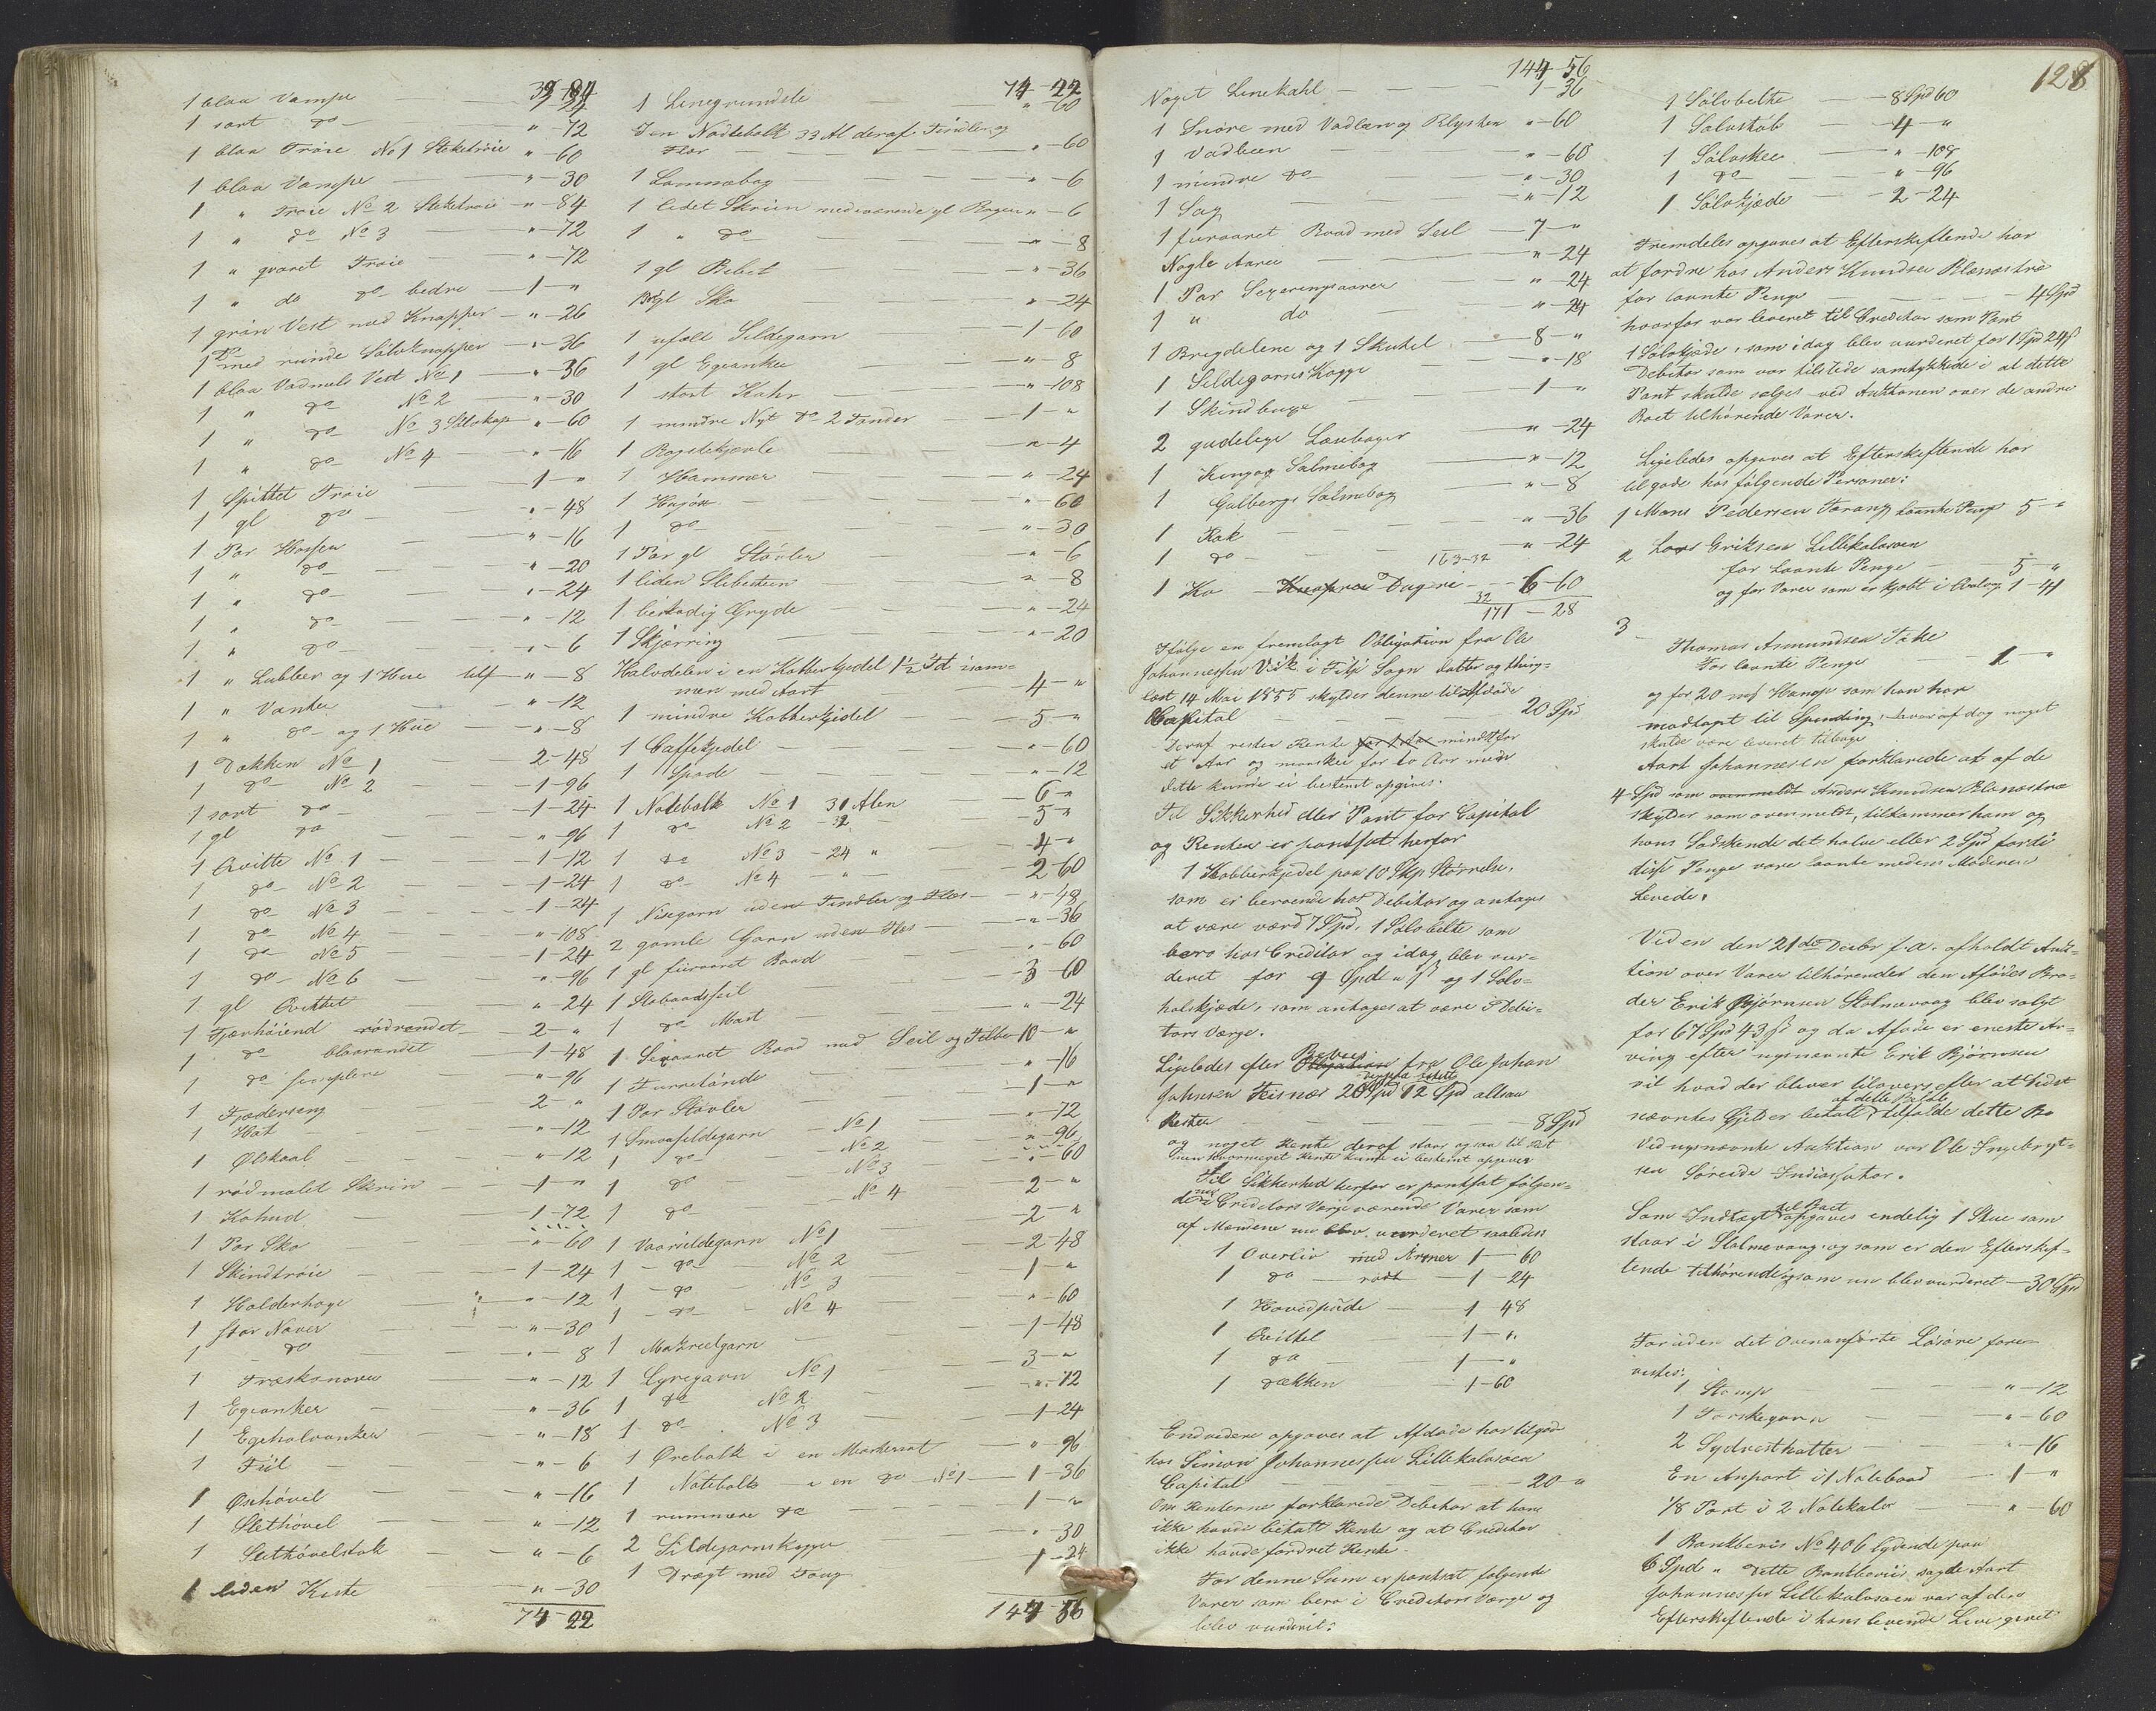 39-84
1 blaa Vampe — "-72
1 sort do — "-72
1 blaa Trøie No 1 Steketrøie "-60
1 blaa Vampe — "-30
1 " Trøie No 2 Steketrøie "-84
1 " do No 3 — "-72
1 " qvaret Trøie — "-72
1 " do do bedre — 1-"
1 grøn Vest med Knapper — "-26
1 do med runde Sølvknapper — "-36
1 blaa Vadmels Vest No 1 — "-36
1 " do No 2 — "-30
1 " do No 3 — "-60
1 " do No 4 — "-16
1 Spittet Trøie — 1-"
1 gl do — "-48
1 Par Hoser — "-16
1 " do — "-20
1 " do — "-24
1 " do — "-12
1 " do — "-6
1 " Lubber og 1 Hue — "-8
1 " Vanter — "-12
1 " do og 1 Hue — "-8
1 Dækken No 1 — 2-48
1 do No 2 — 1-96
1 sort do — 1-24
1 gl do — "-96
1 Qvitte No 1 — 1-12
1 do No 2 — 1-24
1 do No 3 — 1-24
1 do No 4 — "-108
1 do No 5 — 1-24
1 do No 6 — "-96
1 gl Qvittel — "-24
1 Fjærhøiend rødrandet 2-"
1 do blaarandet — 1-48
1 do simplere — "-96
1 Fjæderseng — 2-"
1 Hat — "-12
1 Ølskaal — "-12
1 rødmalet Skrin — 1-"
1 Kohud — 1-72
1 Par Sko — "-60
1 Skindtrøie — 1-24
1 Holderhage — "-12
1 stor Naver — "-30
1 do — "-8
1 Træskonaver — "-12
1 Egeanker — "-36
1 Egehalvanker — "-18
1 Fiil — "-6
1 Øxhøvel — "-16
1 Slethøvel — "-12
1 Slethøvelstok — "-6
1 liden Kiste — "-30
74-22
74-22
1 Linegrundsle — "-60
Een Nodtebolk 33 Al deraf Tindler og
Flør — "-60
1 Lomnebog — "-6
1 lidet Skrin medværende gl Bøger "-6
1 " do — "-8
1 gl Bibel — "-36
1 Par gl Sko — "-24
1 ufælt Sildegarn — 1-60
1 gl Egeanker — "-8
1 stort Kahr — "-108
1 mindre Nyt do 2 Tønder — 1-"
1 Bagstekjævle — "-4
1 Hammer — "-24
1 — "-60
1 do — "-30
1 Par gl Støvler — "-6
1 liden Slibesteen — "-8
1 Gryde — "-24
1 Skjærring — "-20
Halvdelen i en Kobberkjedel 1½ Td isam-
men med Aart — 4-"
1 mindre Kobberkjedel — 5-"
1 Caffekjedel — "-60
1 Spade — "-12
1 Notebolk No 1 31 Alen — 6-"
1 do No 2 32 — 5-"
1 do No 3 24 " — 4-"
1 do No 4 — " — 2-60
1 Nisegarn uden Tindler og Flos — "-48
2 gamle Garn uden Flos — "-36
1 gl fiiraaret Baad — "-60
1 Storbaadseil — 3-60
1 do Mast — "-24
1 Sexaaret Baad med Seil og Tilbe 10-"
1 Furretønde — "-16
1 Par Støvler — 1-"
1 Smaasildegarn No 1 — "-72
1 do No 2 — "-96
1 do No 3 — "-60
1 do No 4 — 2-"
2-"
1 Vaarsildegarn No 1 — 2-48
1 do No 2 — 1-"
1 do No 3 — "-60
1 do No 4 — 1-48
1 Makreelgarn — 3-"
1 Lyregarn No 1 — "-72
1 do No 2 — 1-24
1 do No 3 — "-96
1 Ørebolk i en Mærkesnot — 1-36
1 Notebolk i en do No 1 — 1-"
1 rummere do — "-30
2 Sildegarnskagger — 1-24
1 Drægt med Toug
144-56
128
144-56
Noget Linekahl — 1-36
1 Snøre med Vadbeen og Blysten "-60
1 Vadbeen — "-60
1 mindre do — "-30
1 Sag — "-12
1 furaaret Baad med Seil — 7-"
Nogle Aarer — "-24
1 Par Sexeringsaarer — "-24
1 " do — "-24
1 Brigdeline og 1 Skutel — 8-"
1 Sildegarns Kagge — "-18
1 Skindbuxe — 1-"
2 gudelige Læsebøger — "-24
1 Kingos Salmebog — "-12
1 Gulbergs Salmebog — "-8
1 Rok — "-36
1 do — "-24
163-32
1 Ko Dagrei — 6-60
32
171-28
Ifølge en fremlagt Obligation fra Ole
Johannessen Vik i Fitje Sogn datt. og thing-
læst 14 Mai 1855 skylder denne til Afdøde
Kapital — 20 Spd
Deraf rester Rente for 1 Aar mindst for
et Aar og maaskee for to Aar men
dette kunde ei bestemt opgives.
Til Sikkerhed eller Pant for Capital
og Renter er pantsat herfor
1 Kobberkjedel paa 10 Skp Størrelse,
som er beroende hos Debitor og antages
at være værd 7 Spd, 1 Sølvbelte som
bero hos Creditor og idag blev vur-
deret for 9 Spd " ß og 1 Sølv-
halskjæde, som antages at være i Debi-
tors Værge.
Ligeledes efter Obligation Beviis fra Ole Johan
Johnsen Teisnæs 20 Spd derpaa betalt 12 Spd altsaa
Rester — 8 Spd
og noget Rente deraf staar ogsaa til Rest
men hvormeget Rente kunde ei bestemt opgives
Til Sikkerhed herfor er pantsat følgen-
de nu i Creditors Værge værende Varer som
af Mændene nu blev vurderet saaledes
1 Overliv med Ærmer 1-60
1 do — rødt — 1-24
1 Hovedpude — 1-48
1 Qvittel — 1-"
1 do — 1-"
1 Dækken — 1-60
Endvidere opgaves at Afdøde har tilgode
hos Simon Johannessen Lillekalsøen
Capital — 20-"
Om Renterne forklarede Debitor at han
ikke havde betalt Rente og at Creditor
ikke havde fordret Rente.
For denne Sum er pantsat følgende
Varer som bero i Creditors Værge og
blev vurderet:
1 Sølvbelte — 8 Spd 60
1 Sølvstøb — 4-"
1 Sølvskee — "-108
1 do — "-96
1 Sølvkjæde — 2-24
Fremdeles opgaves at Efterskiftende har
at fordre hos Anders Knudsen Blænestræ
for laante Penge — 4 Spd
hvorfor var leveret til Creditor som Pant
1 Sølvkjæde, som idag blev vurderet for 1 Spd 24 ß
Debitor som var tilstede samtykkede i at dette
Pant skulde sælges ved Auktionen over de andre
Boet tilhørende Varer.
Ligeledes opgaves at Efterskiftende har
tilgode hos følgende Personer:
1 Mons Pedersen Tarang laante Penge 5-"
2 Lars Eriksen Lillekalsøen
for laante Penge — 5-"
og for Varer som er kjøbt i Auktion 1-41
3 Thomas Asmundsen Take
For laante Penge — 1-"
og for 20 Hamp som han har
modtaget til Spinding, hvoraf dog noget
skulde være leveret tilbage
Aart Johannesen forklarede at af de
4 Spd som ovenmeldt Anders Knudsen Blænestræ
skylder som ovenmeldt, tilkommer ham og
hans Sødskende det halve eller 2 Spd fordi
disse Penge vare laante medens Moderen
levede.
Ved en den 21de Decbr f.a. afholdt Auk-
tion over Varer tilhørendes den Afdødes Bro-
der Erik Bjørnsen Stolmevaag blev solgt
for 67 Spd 43 ß og da Afdøde er eneste Ar-
ving efter nysnævnte Erik Bjørnsen
vil hvad der bliver tilovers efter at Sidst
nævntes Gjeld er betalt af dette Beløb, tilfalde dette Bo
Ved nysnævnte Auktion var Ole Ingebrigt-
sen Søreide Indkassator.
Som Indtægt til Boet opgaves endelig 1 Stue som
staar i Stolmevaag, og som er den Efterskif-
tende tilhørende, som nu blev vurderet — 30 Spd
Foruden det Ovenanførte Løsøre fore-
vistes:
1 Stamp — "-12
1 Torskegarn — "-60
2 Sydvesthatter — "-16
En Anpart i 1 Notebaad — 1-"
1/8 Part i 2 Notekaler — "-60
1 Bankbevis No 406 lydende paa
6 Spd " Dette Bankbeviis sagde Aart
Johannessen Lillekalsøen var af den
Efterskiftende i hans levende Live givet